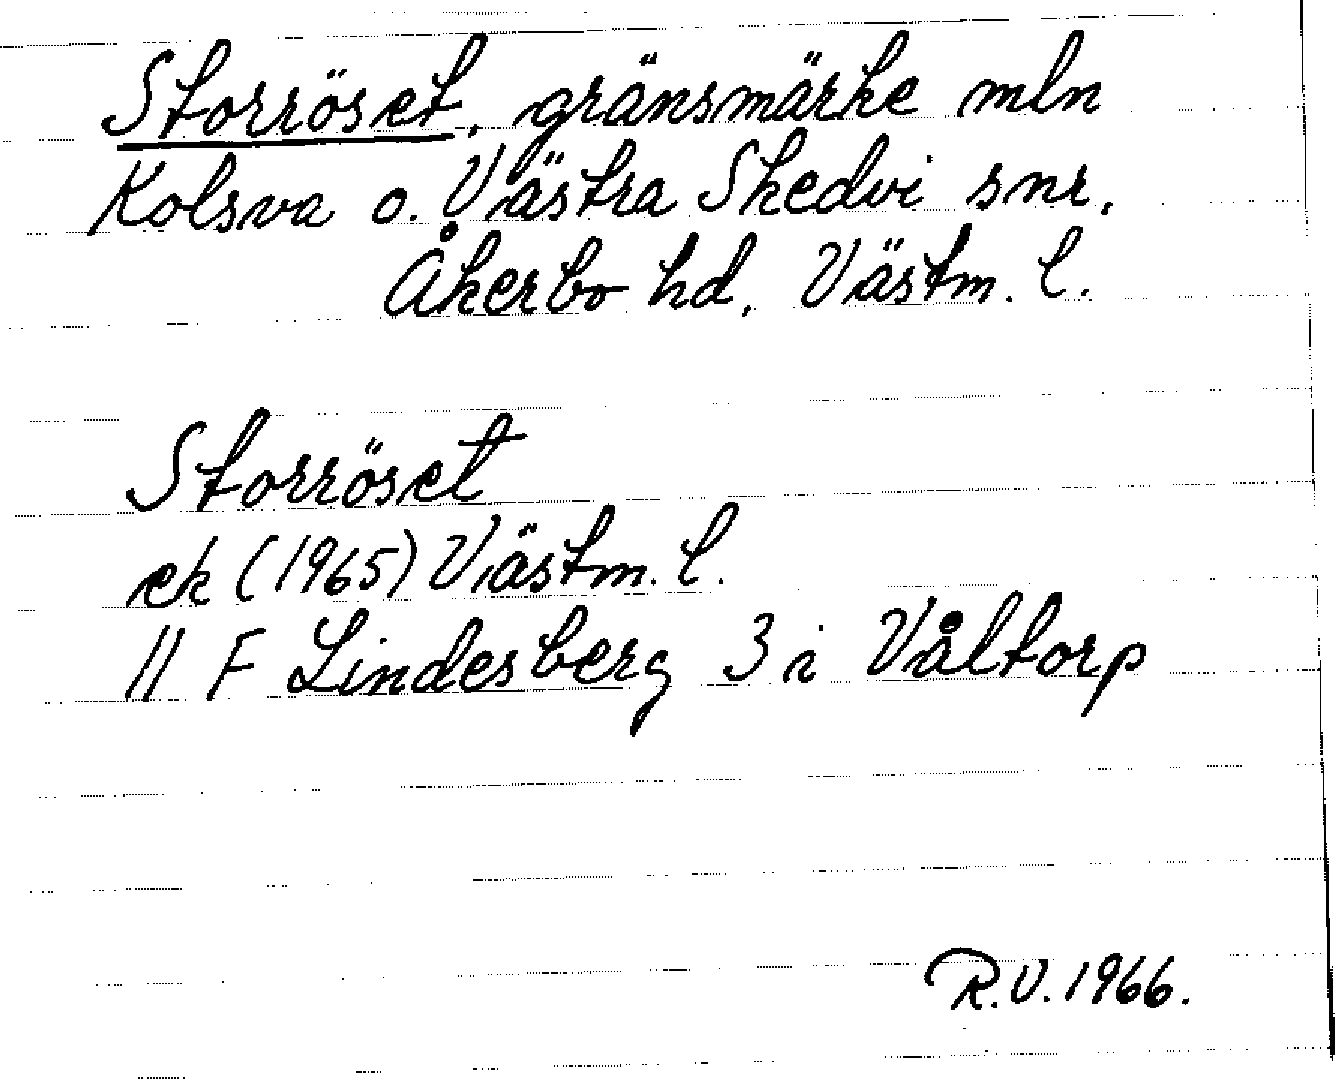 Storröset, gränsmärke mln
Kolsva o. Västra Skedvi snr,
Åkerbo hd, Västm. l.
Storröset
ek (1965) Västm. l.
11 F Lindesberg 3 i Våltorp
R.V. 1966.